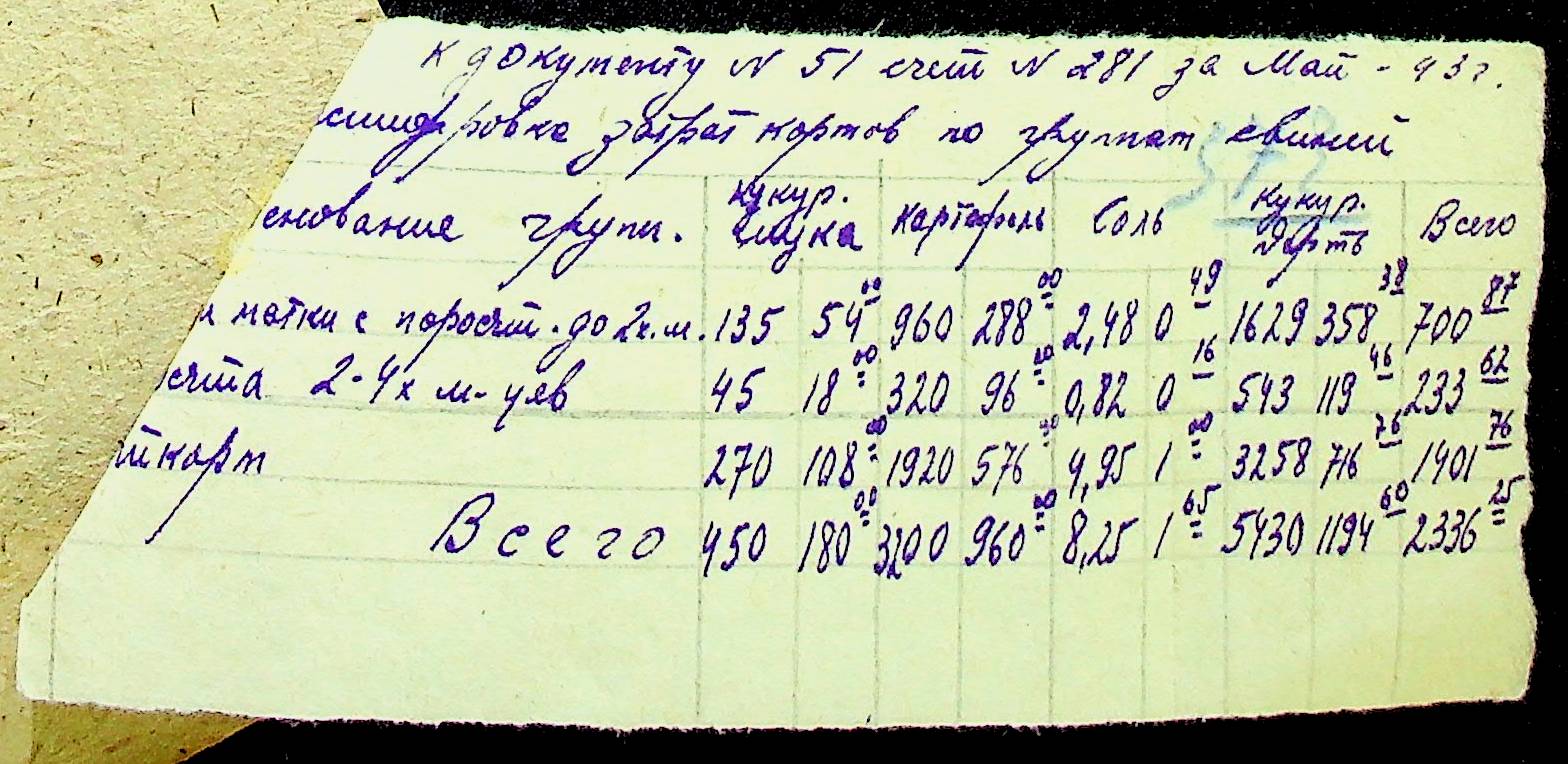 к документу N 51 счет N 281 за Май - 43г.
сшифровка затрат кормов по группам свиней
енование групп. кукур. картофель Соль кукур. Всего
мука дерть
и матки с поросят. до 2х. м. 135 54 00 960 288 00 2,48 0 49 1629 358 38 700 87
сята 2-4х м-цев 45 18 00 320 96 00 0,82 0 16 543 119 46 233 62
ткорм 270 108 00 1920 576 00 4,95 1 00 3258 716 76 1401 76
Всего 450 180 00 3200 960 00 8,25 1 65 5430 1194 60 2336 25